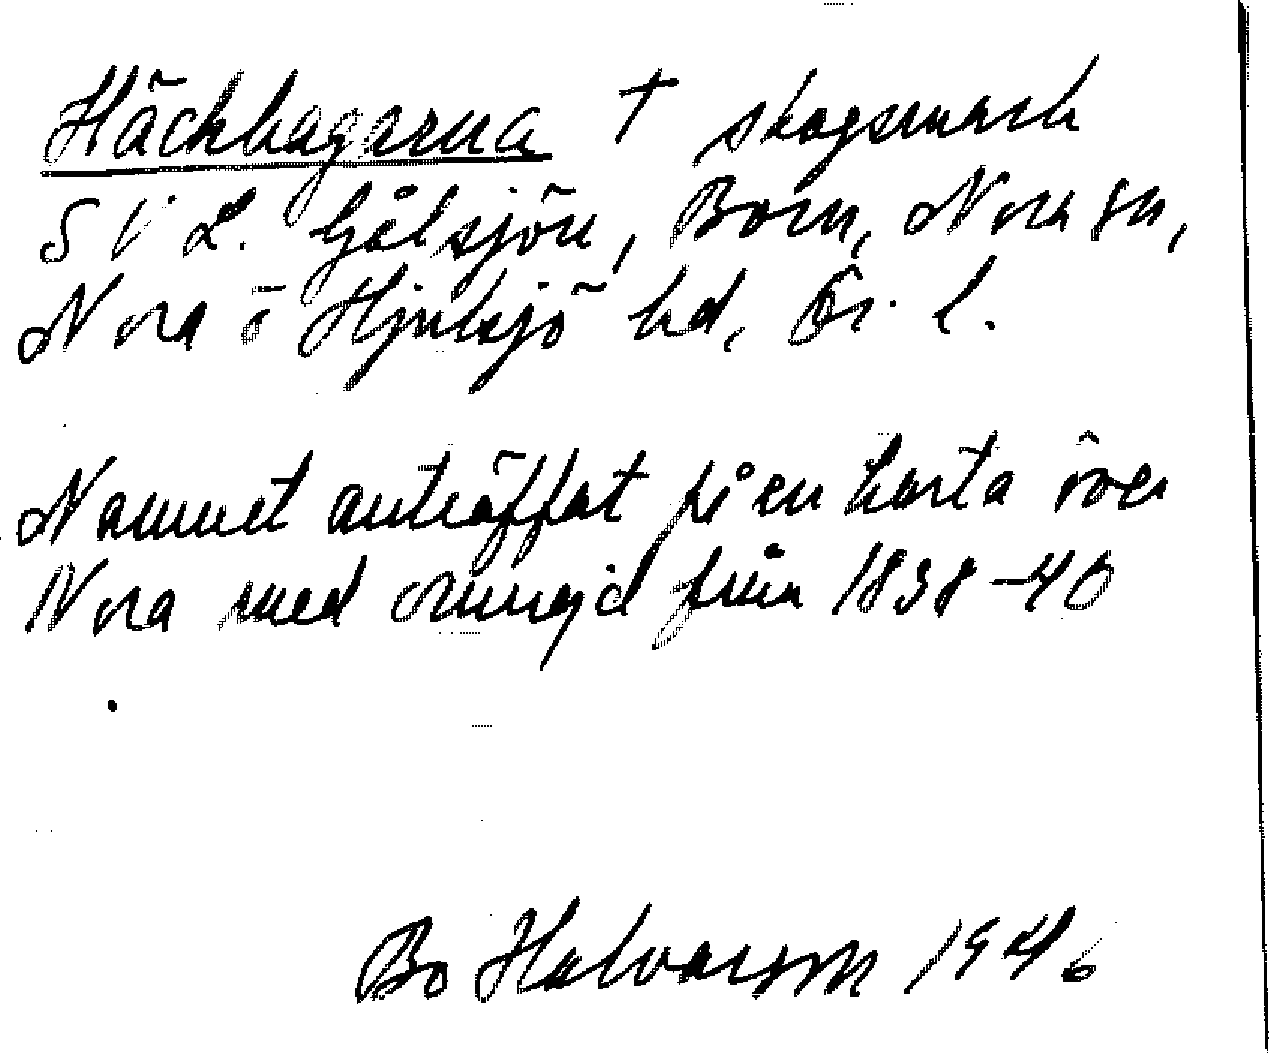 Häckhagarna † skogsmark
SV L. Gålsjön, Born, Nora sn,
Nora o Hjulsjö hd, Ör. l.
Namnet anträffat på en karta över
Nora med omnejd från 1838-40
Bo Halvarsson 1946